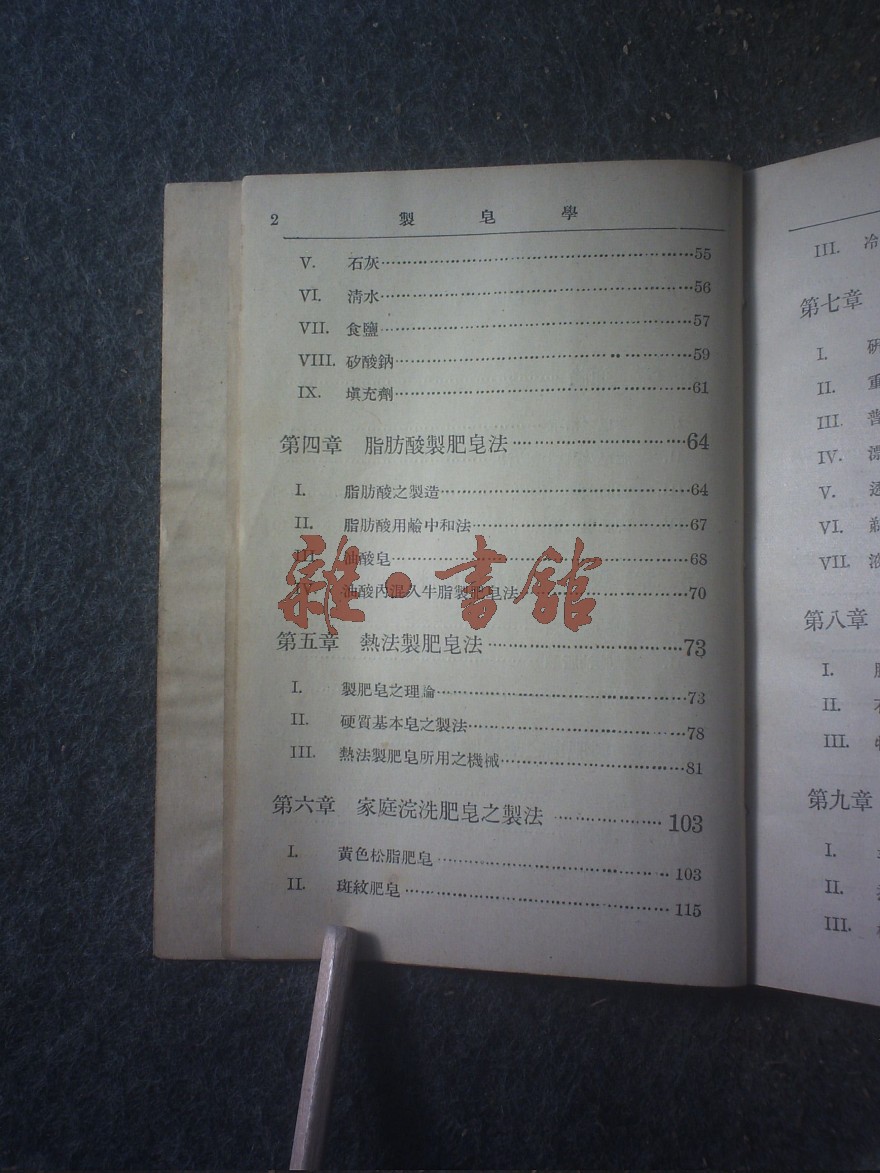 2 製皂學
V. 石灰……55
VI. 清水……56
VII. 食鹽……57
VIII. 矽酸鈉……59
IX. 填充劑……61
第四章 脂肪酸製肥皂法……64
I. 脂肪酸之製造……64
II. 脂肪酸用鹼中和法……67
III. 油酸皂……68
IV. 油酸內混入牛脂製肥皂法……70
雜·書館
第五章 熱法製肥皂法……73
I. 製肥皂之理論……73
II. 硬質基本皂之製法……78
III. 熱法製肥皂所用之機械……81
第六章 家庭浣洗肥皂之製法……103
I. 黃色松脂肥皂……103
II. 斑紋肥皂……115
III. 冷
第七章
I. 研
II. 重
III. 普
IV. 漂
V. 透
VI.
VII. 液
第八章
I.
II.
III.
第九章
I.
II.
III.